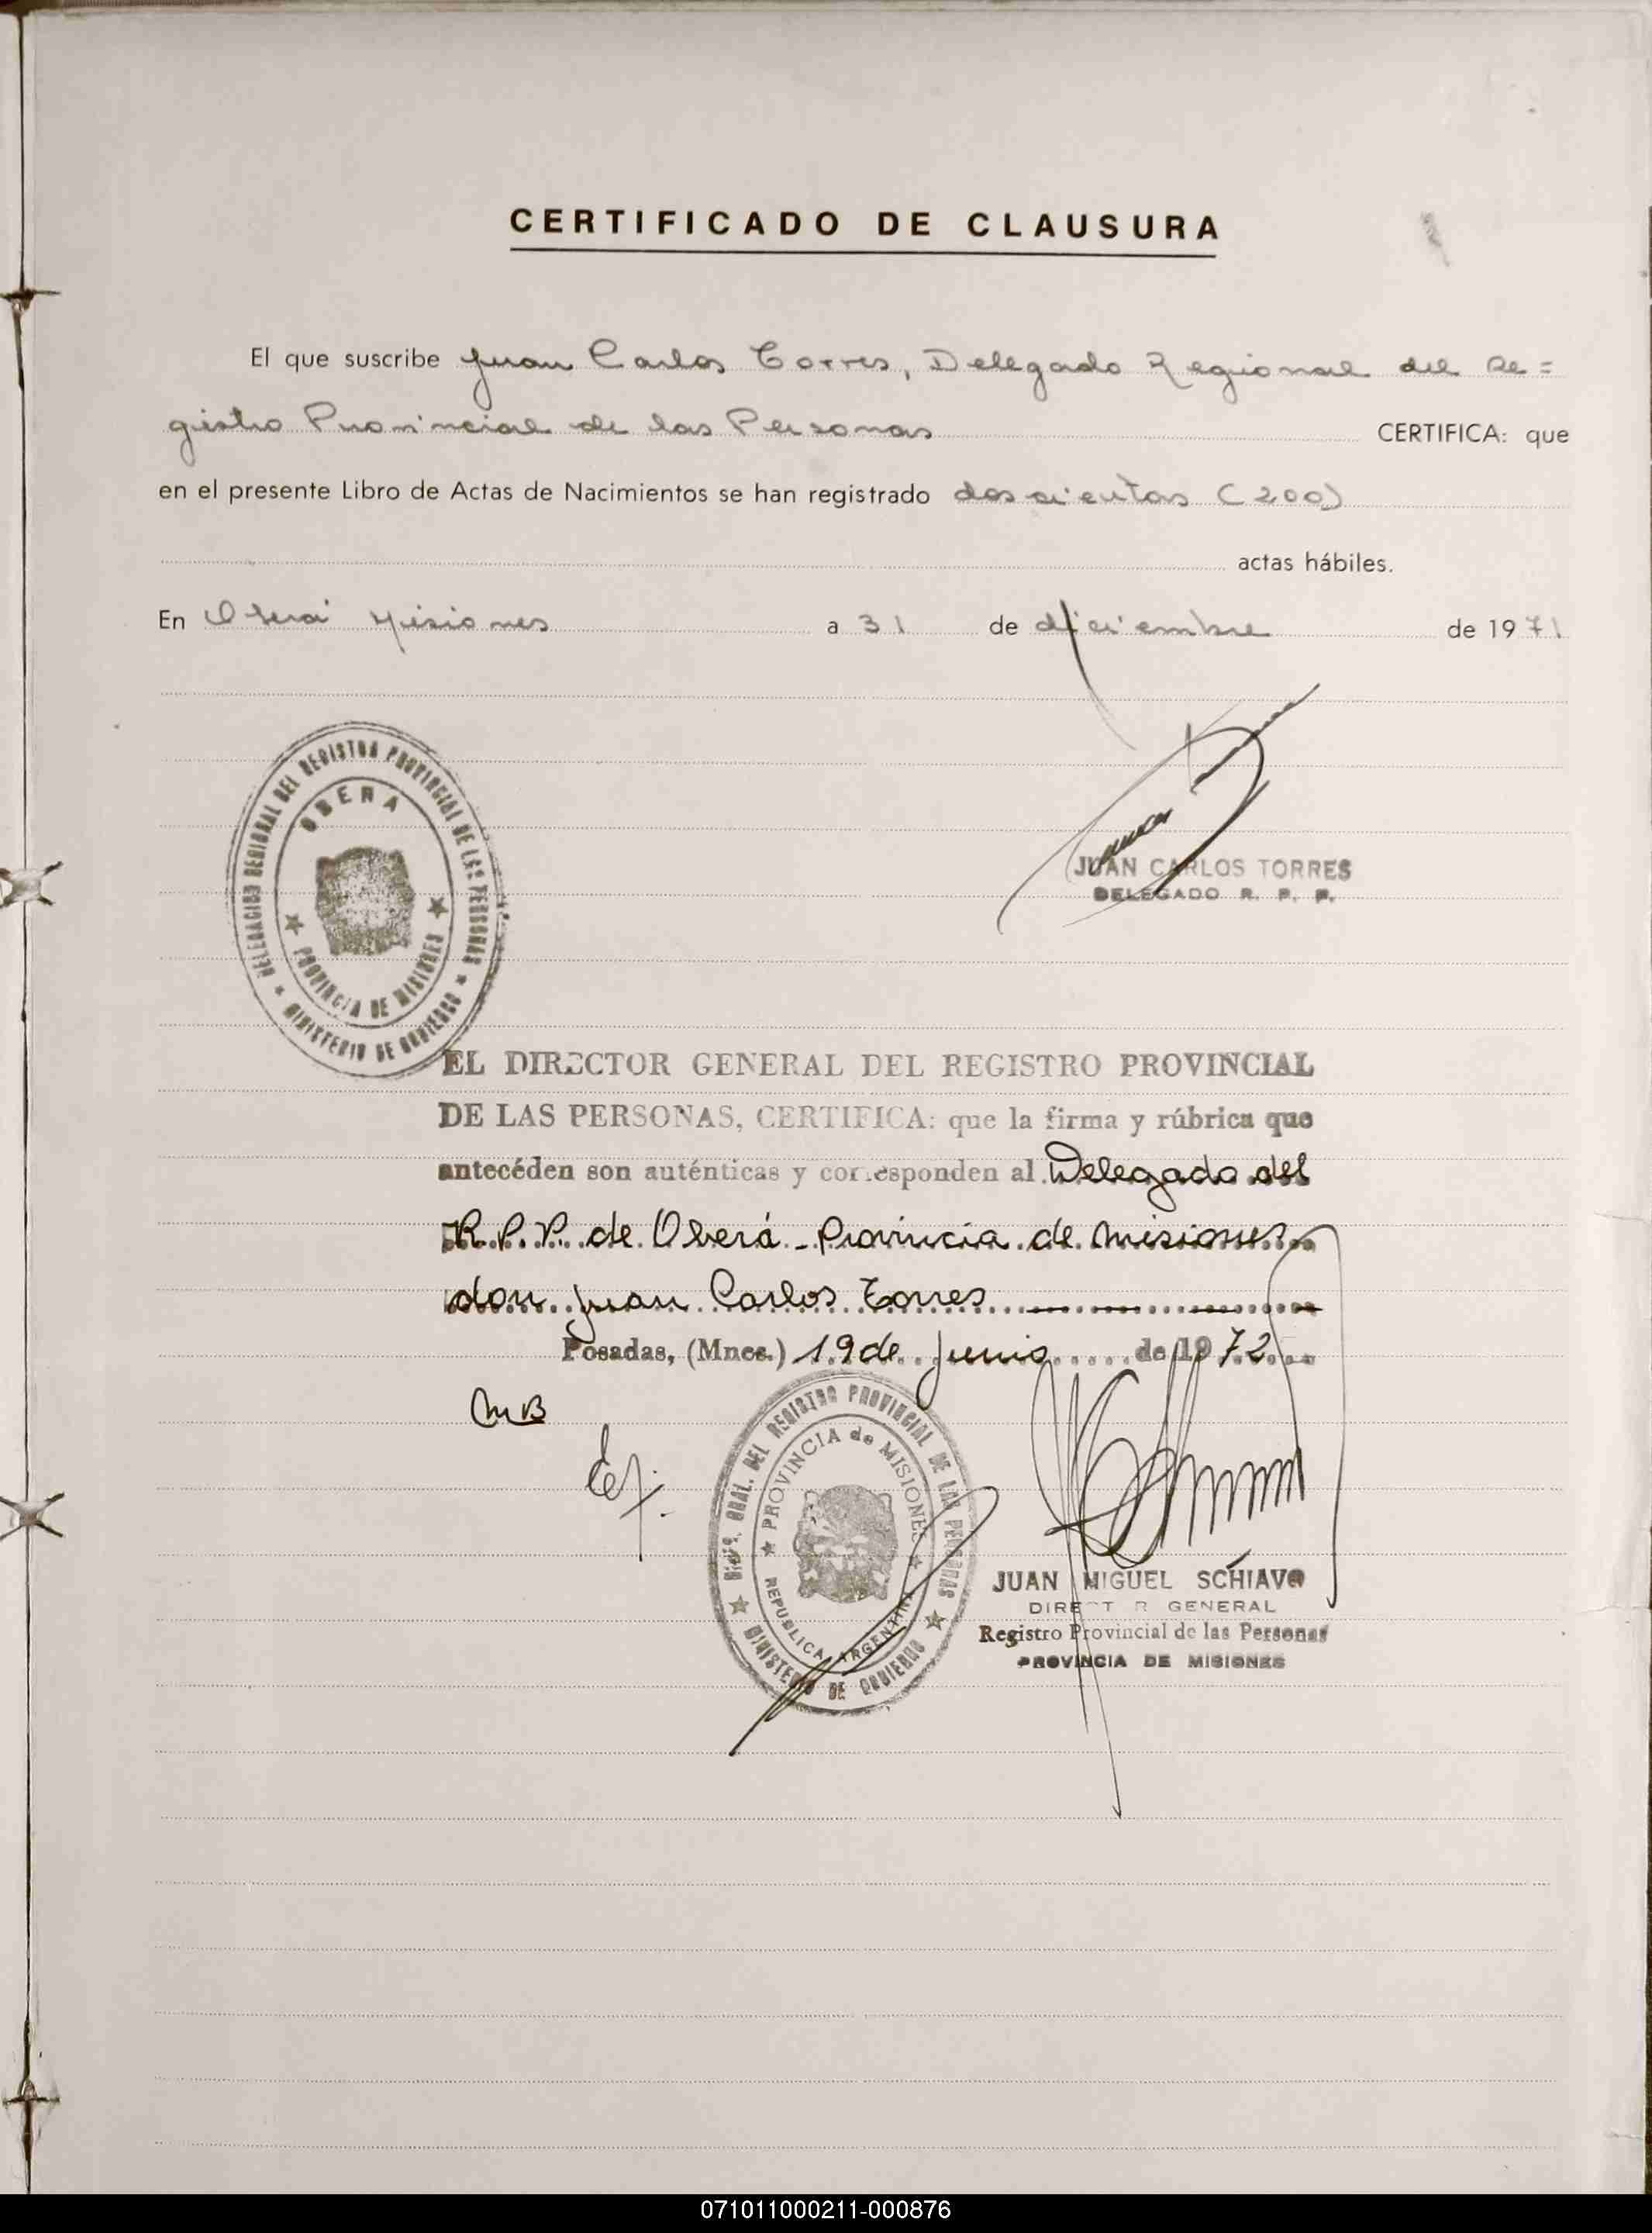 CERTIFICADO DE CLAUSURA
El que suscribe Juan Carlos Torres, Delegado Regional del Re=
gistro Provincial de las Personas CERTIFICA: que
en el presente Libro de Actas de Nacimientos se han registrado doscientas (200)
actas hábiles.
En Oberá Misiones a 31 de diciembre de 1971
DELEGACION REGIONAL DEL REGISTRO PROVINCIAL DE LAS PERSONAS
OBERA
PROVINCIA DE MISIONES
MINISTERIO DE GOBIERNO
JUAN CARLOS TORRES
DELEGADO R. P. P.
EL DIRECTOR GENERAL DEL REGISTRO PROVINCIAL
DE LAS PERSONAS, CERTIFICA: que la firma y rúbrica que
antecéden son auténticas y corresponden al Delegado del
R.P.P. de Oberá - Provincia de Misiones
don Juan Carlos Torres
Posadas, (Mnes.) 19 de Junio de 1972
MB
GRAL. DEL REGISTRO PROVINCIAL DE LAS PERSONAS
PROVINCIA de MISIONES
REPUBLICA ARGENTINA
MINISTERIO DE GOBIERNO
JUAN MIGUEL SCHIAVO
DIRECTOR GENERAL
Registro Provincial de las Personas
PROVINCIA DE MISIONES
071011000211-000876